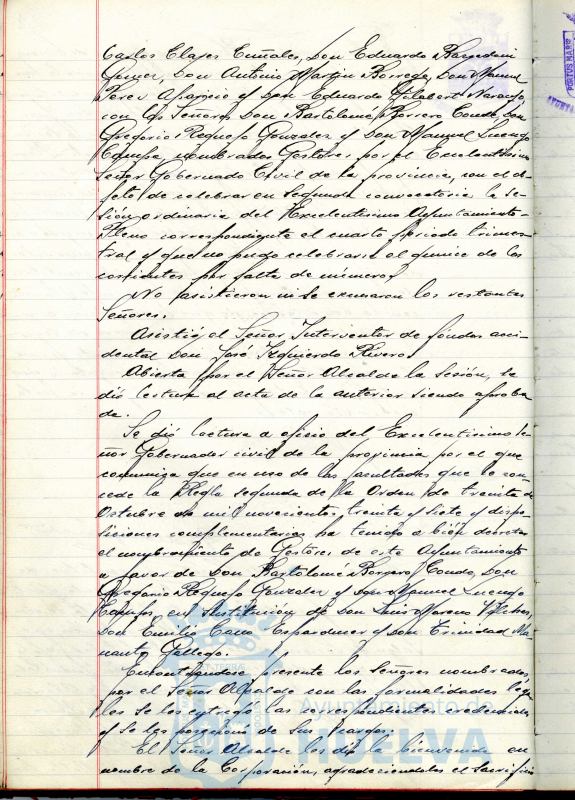 Carlos Clases Cuñales, Don Eduardo
Don Antonio Martin Borrego, Don Manuel
Perez Aparicio y Don Eduardo Gilabert Naranjo,
con los Señores Don Bartolomé Borrero Conde, Don
Gregorio Requejo Gonzalez y Don Manuel Luengo
nombrados Gestores por el Excelentísimo
Señor Gobernado Civil de la provincia, con el ob-
jeto de celebrar en segunda convocatoria la se-
sión ordinaria del Excelentísimo Ayuntamiento-
Pleno correspondiente al cuarto periodo trimes-
tral y que no pudo celebrarse el quince de los
corrientes por falta de número.
No asistieron ni se excusaron los restantes
Señores.
Asistió el Señor Interventor de fondos acci-
dental Don José Izquierdo Rivero.
Abierta por el Señor Alcalde la sesión, se
dió lectura al acta de la anterior siendo aproba-
da.
Se dió lectura a oficio del Excelentísimo Se-
ñor Gobernador civil de la provincia por el que
comunica que en uso de las facultades que le con-
cede la Regla segunda de la Orden de treinta de
Octubre de mil novecientos treinta y siete y dispo-
siciones complementarias ha tenido a bien decretar
el nombramiento de Gestores de este Ayuntamiento
a favor de Don Bartolomé Borrero Conde, Don
Gregorio Requejo Gonzalez y Don Manuel Luengo
en sustitución de Don Luis Moreno
Don Emilio Cano y Don Trinidad
Gallego.
Encontrándose presente los Señores nombrados,
por el Señor Alcalde con las formalidades lega-
les se les entrega las correspondientes credenciales
y se les posesiona de sus cargos.
El Señor Alcalde les dió la bienvenida en
nombre de la Corporación, agradeciendoles el sacrificio
Ayuntamiento de
HUELVA
PORTUS MARIS